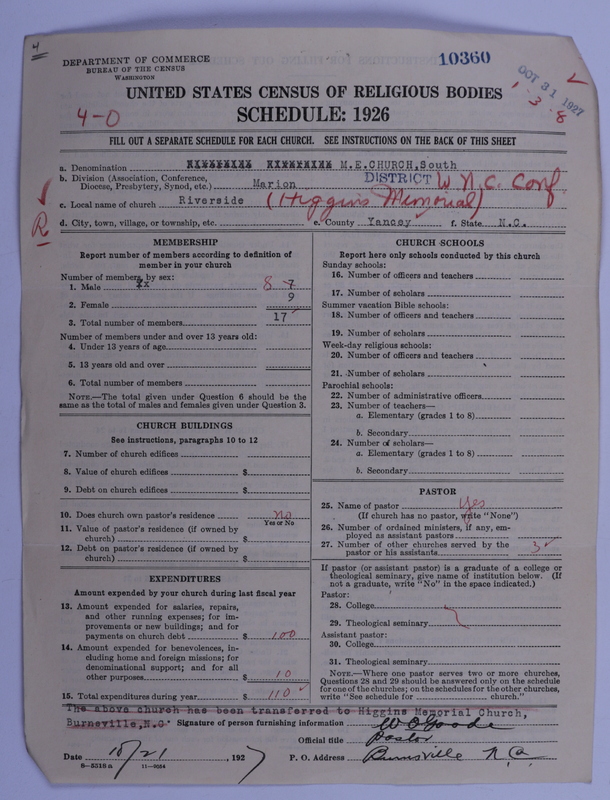 4
DEPARTMENT OF COMMERCE
BUREAU OF THE CENSUS
WASHINGTON
10360
OCT 31 1927
1-3-8
UNITED STATES CENSUS OF RELIGIOUS BODIES
4-0
SCHEDULE: 1926
FILL OUT A SEPARATE SCHEDULE FOR EACH CHURCH. SEE INSTRUCTIONS ON THE BACK OF THIS SHEET
a. Denomination M.E.CHURCH,South
b. Division (Association, Conference, Diocese, Presbytery, Synod, etc.) Marion DISTRICT W N.C. Conf.
c. Local name of church Riverside (Higgins Memorial)
R
d. City, town, village, or township, etc. e. County Yancey f. State N.C.
MEMBERSHIP
Report number of members according to definition of
member in your church
Number of members, by sex:
1. Male 8 7
2. Female 9
3. Total number of members 17
Number of members under and over 13 years old:
4. Under 13 years of age
5. 13 years old and over
6. Total number of members
NOTE.—The total given under Question 6 should be the
same as the total of males and females given under Question 3.
CHURCH BUILDINGS
See instructions, paragraphs 10 to 12
7. Number of church edifices
8. Value of church edifices $
9. Debt on church edifices $
10. Does church own pastor's residence no
Yes or No
11. Value of pastor's residence (if owned by
church) $
12. Debt on pastor's residence (if owned by
church) $
EXPENDITURES
Amount expended by your church during last fiscal year
13. Amount expended for salaries, repairs,
and other running expenses; for im-
provements or new buildings; and for
payments on church debt $ 100
14. Amount expended for benevolences, in-
cluding home and foreign missions; for
denominational support; and for all
other purposes $ 10
15. Total expenditures during year $ 110
CHURCH SCHOOLS
Report here only schools conducted by this church
Sunday schools:
16. Number of officers and teachers
17. Number of scholars
Summer vacation Bible schools:
18. Number of officers and teachers
19. Number of scholars
Week-day religious schools:
20. Number of officers and teachers
21. Number of scholars
Parochial schools:
22. Number of administrative officers
23. Number of teachers—
a. Elementary (grades 1 to 8)
b. Secondary
24. Number of scholars—
a. Elementary (grades 1 to 8)
b. Secondary
PASTOR
25. Name of pastor Yes
(If church has no pastor, write "None")
26. Number of ordained ministers, if any, em-
ployed as assistant pastors
27. Number of other churches served by the
pastor or his assistants 3
If pastor (or assistant pastor) is a graduate of a college or
theological seminary, give name of institution below. (If
not a graduate, write "No" in the space indicated.)
Pastor:
28. College
29. Theological seminary
Assistant pastor:
30. College
31. Theological seminary
NOTE.—Where one pastor serves two or more churches,
Questions 28 and 29 should be answered only on the schedule
for one of the churches; on the schedules for the other churches,
write "See schedule for church."
The above church has been transferred to Higgins Memorial Church,
Burnsville,N.C. Signature of person furnishing information W O Goode
Official title Pastor
Date 10/21, 1927 P. O. Address Burnsville N C.
8—5318a 11—9084